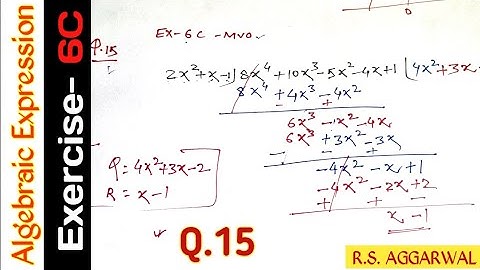 Algebraic Expression
Exercise- 6C
EX-6C -MVO.
P.15
2x²+x-1)8x⁴+10x³-5x²-4x+1(4x²+3x-
8x⁴+4x³-4x²
- - +
6x³-1x²-4x
6x³+3x²-3x
- - +
-4x²-x+1
-4x²-2x+2
+ + -
x-1
Q=4x²+3x-2
R=x-1
Q.15
R.S. AGGARWAL